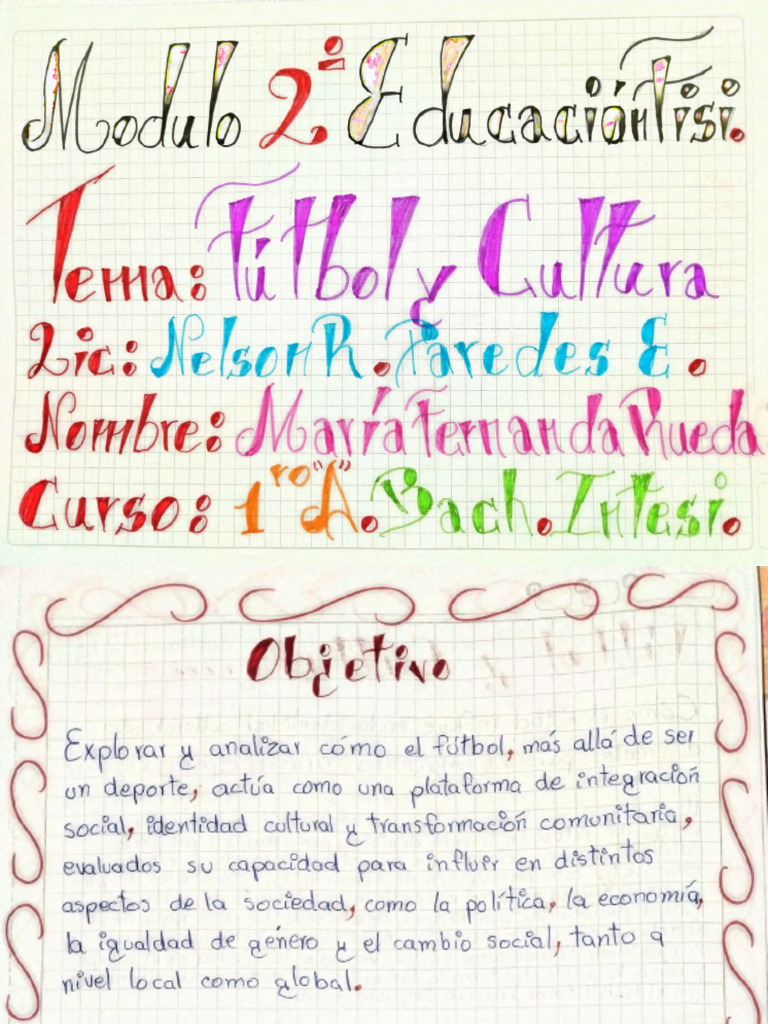 Modulo 2º Educación Fisi.
Tema: Fútbol y Cultura
Lic: Nelson R. Paredes E.
Nombre: María Fernanda Rueda
Curso: 1ro "A". Bach. Intesi.
Objetivo
Explorar y analizar cómo el fútbol, más allá de ser
un deporte, actúa como una plataforma de integración
social, identidad cultural y transformación comunitaria,
evaluados su capacidad para influir en distintos
aspectos de la sociedad, como la política, la economía,
la igualdad de género y el cambio social, tanto a
nivel local como global.